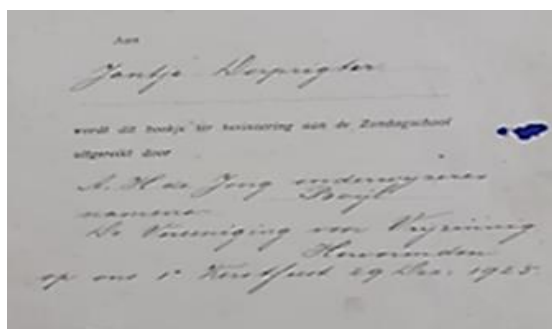 Aan
Jantje Dorprigter
wordt dit boekje ter herinnering aan de Zondagschool
uitgereikt door
A. H. de Jong onderwijzeres
namens
De Vereeniging voor Vrijzinnig
Hervormden
op ons 1e Kerstfeest 29 Dec. 1925